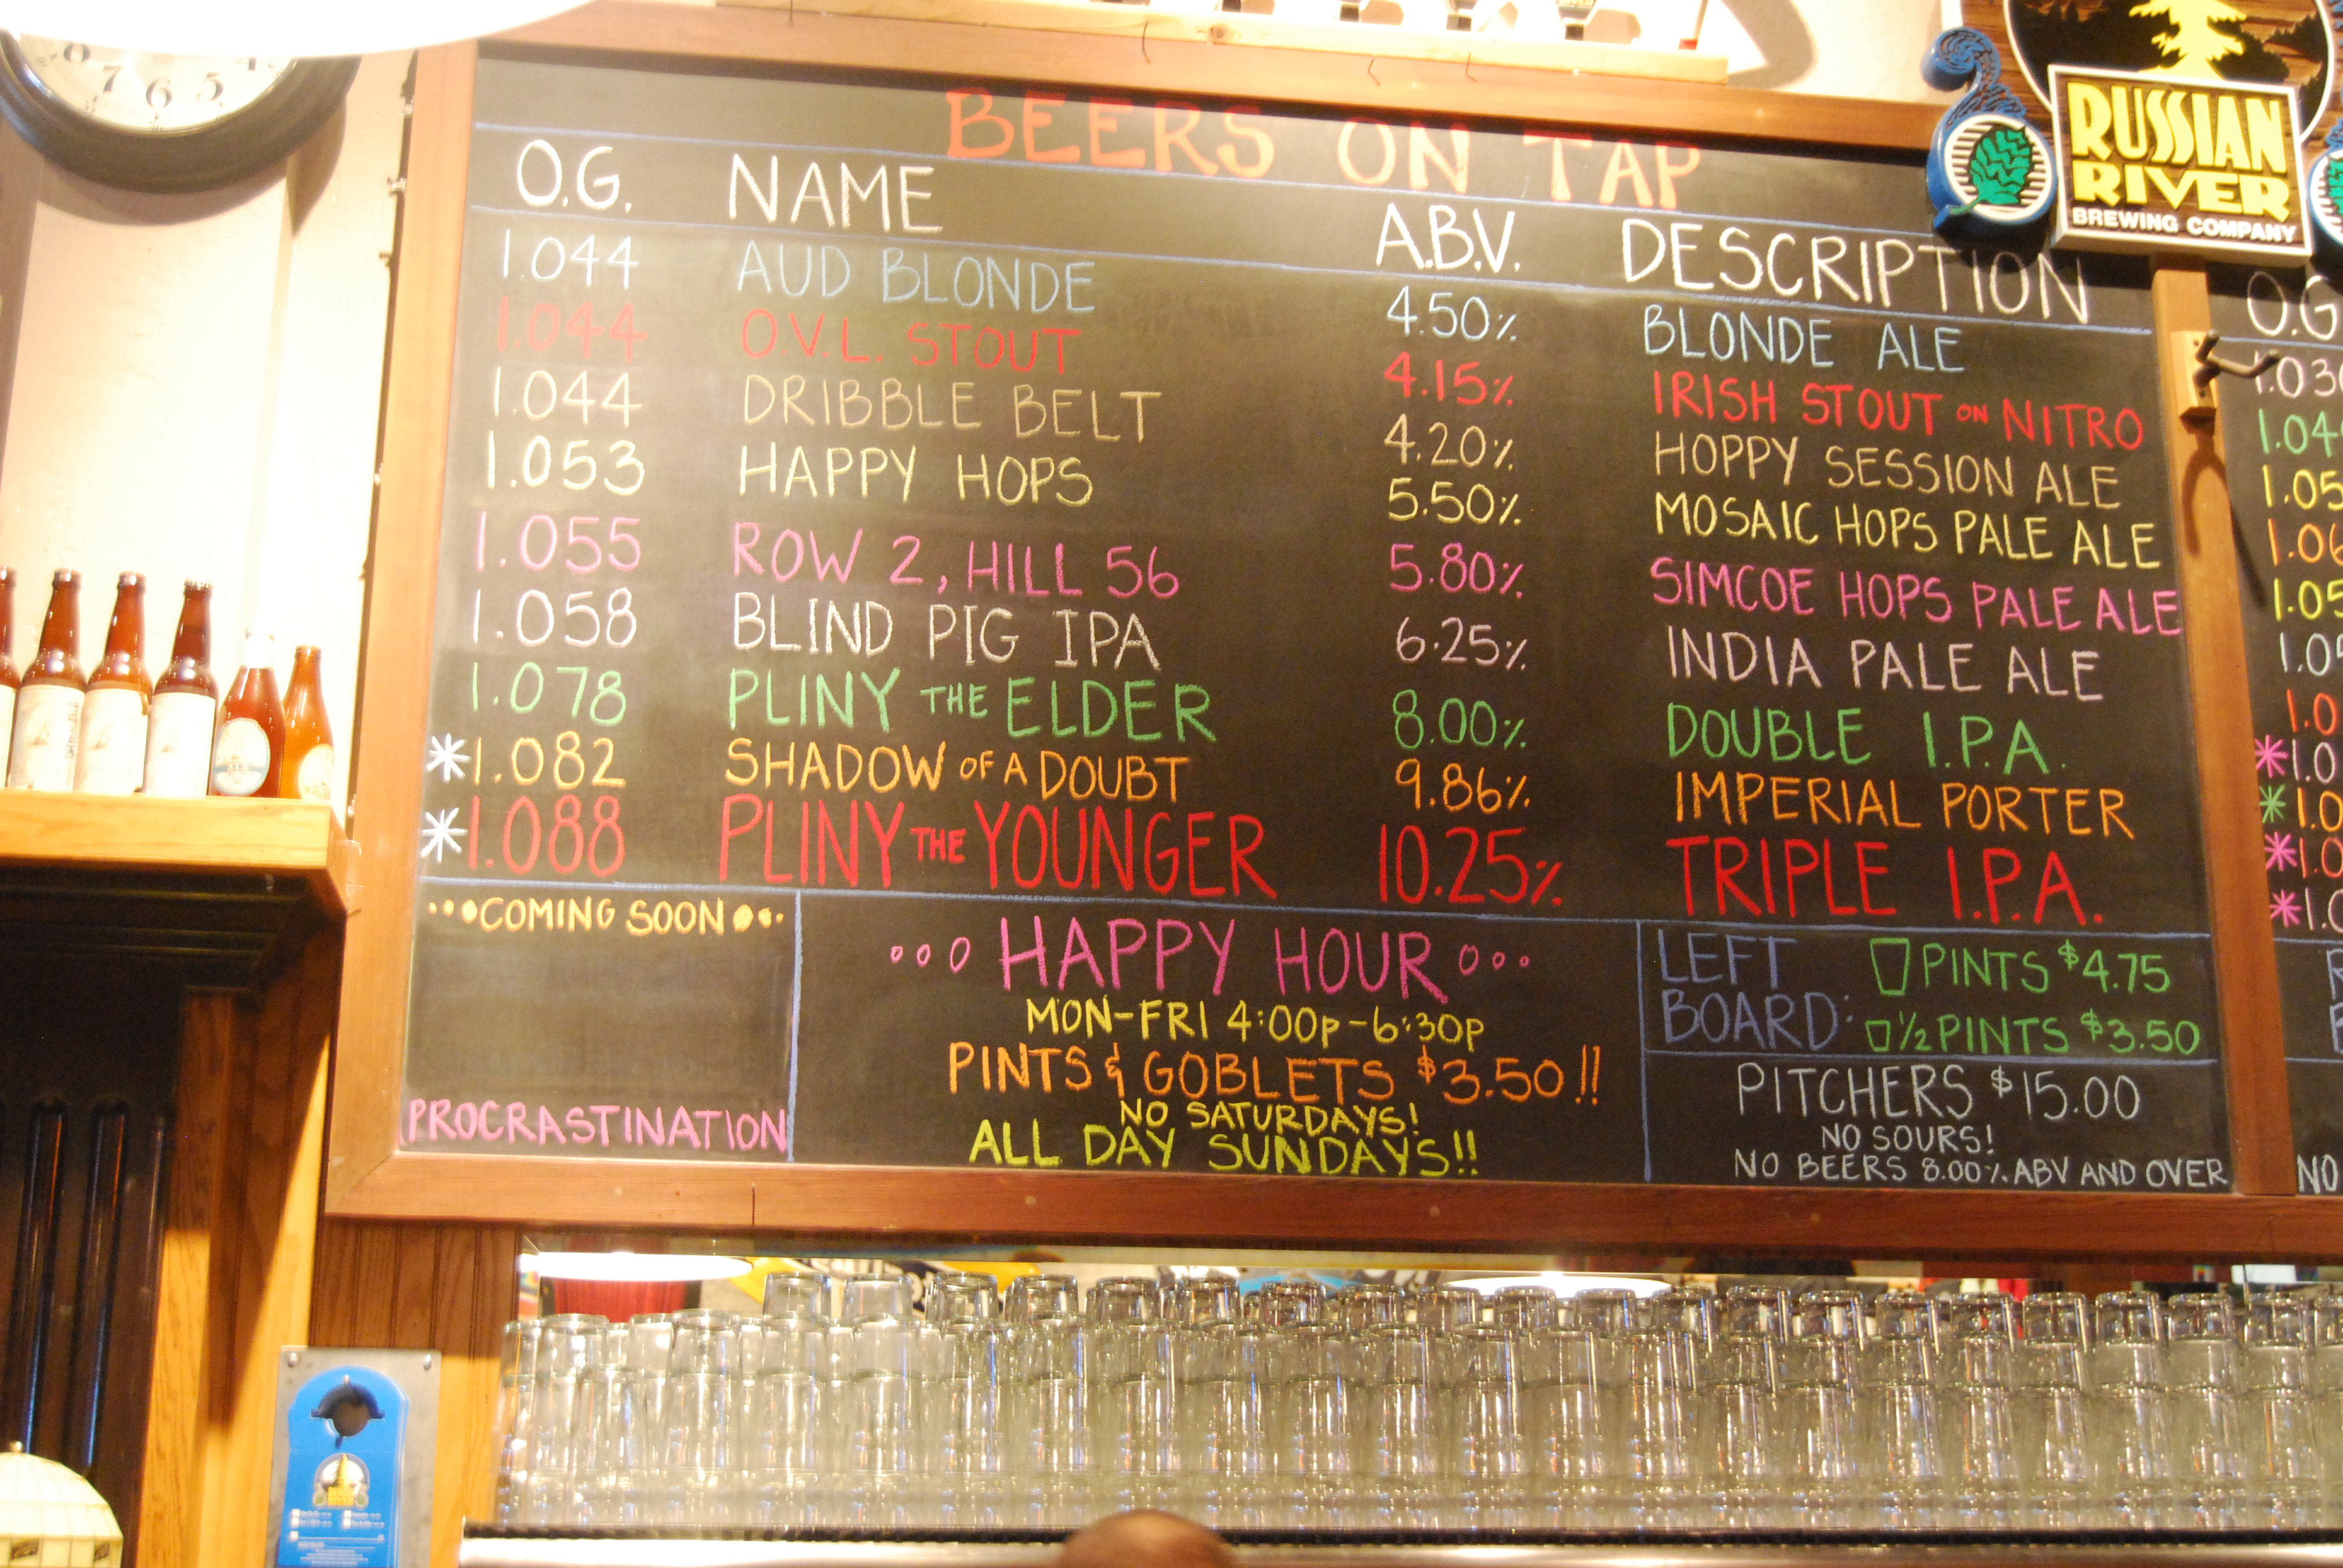 8 7 6 5 4
BEERS ON TAP
RUSSIAN
RIVER
BREWING COMPANY
O.G. NAME A.B.V. DESCRIPTION
1.044 AUD BLONDE 4.50% BLONDE ALE
1.044 O.V.L. STOUT 4.15% IRISH STOUT ON NITRO
1.044 DRIBBLE BELT 4.20% HOPPY SESSION ALE
1.053 HAPPY HOPS 5.50% MOSAIC HOPS PALE ALE
1.055 ROW 2, HILL 56 5.80% SIMCOE HOPS PALE ALE
1.058 BLIND PIG IPA 6.25% INDIA PALE ALE
1.078 PLINY THE ELDER 8.00% DOUBLE I.P.A.
*1.082 SHADOW OF A DOUBT 9.86% IMPERIAL PORTER
*1.088 PLINY THE YOUNGER 10.25% TRIPLE I.P.A.
...COMING SOON...
PROCRASTINATION
...HAPPY HOUR...
MON-FRI 4:00P-6:30P
PINTS & GOBLETS $3.50!!
NO SATURDAYS!
ALL DAY SUNDAYS!!
LEFT BOARD:
PINTS $4.75
1/2 PINTS $3.50
PITCHERS $15.00
NO SOURS!
NO BEERS 8.00% ABV AND OVER
O.G
NO